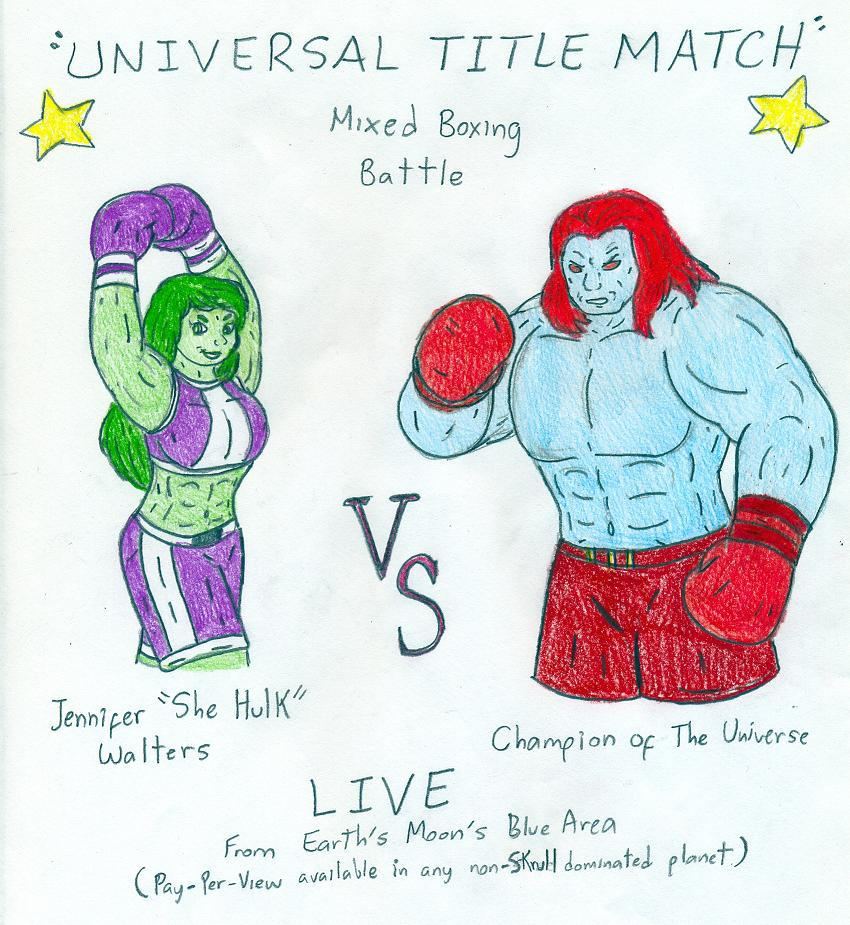 "UNIVERSAL TITLE MATCH"
Mixed Boxing
Battle
VS
Jennifer "She Hulk"
Walters
Champion of The Universe
LIVE
From Earth's Moon's Blue Area
(Pay-Per-View available in any non-Skrull dominated planet)